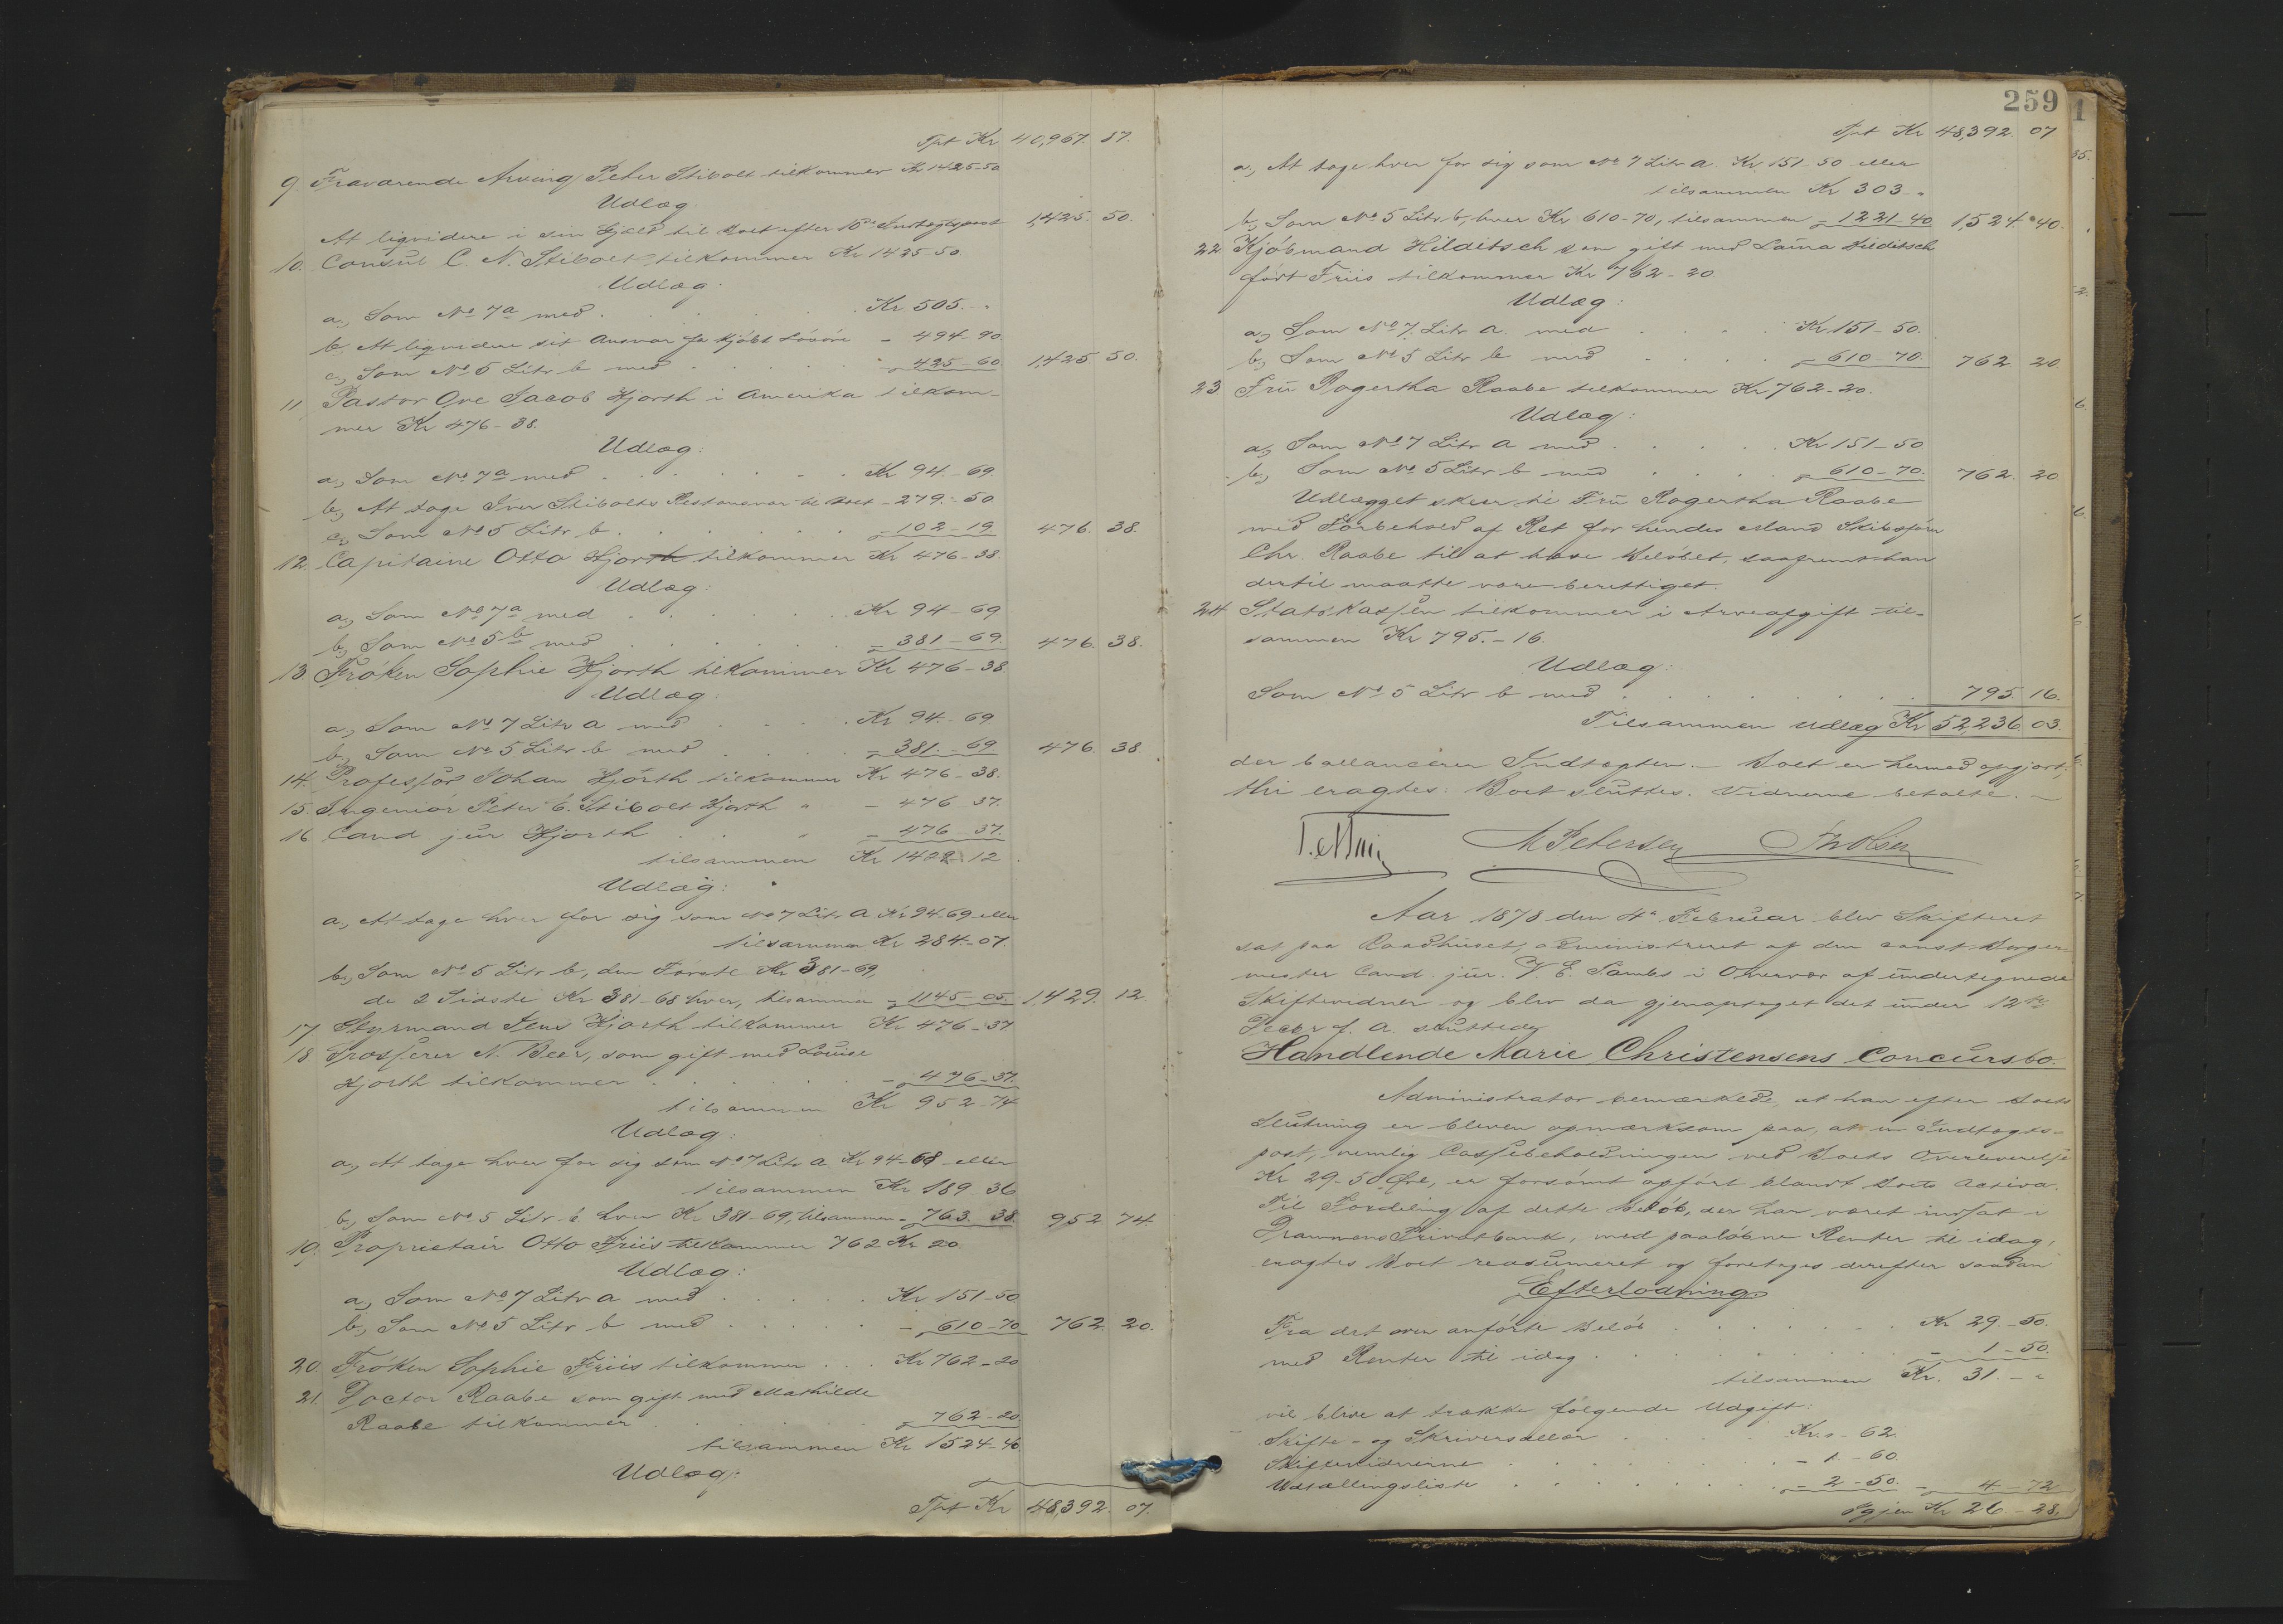 Tpt Kr 40,967. 87.
9. Fraværende Arving Peter Stibolt tilkommer Kr 1425-50
Udlæg
At liqvidere i sin Gjæld til Boet efter 10de Indtægtspost 1,425. 50.
10. Consul C. N. Stibolt tilkommer Kr 1425-50
Udlæg:
a, Som No 7a med . . . . Kr 505. -
b, At liqvidere sit Ansvar for kjöbt Lösöre - 494-90
c, Som No 5 Litr b med . . . - 425-60 1,425 50.
11 Pastor Ove Jacob Hjorth i Amerika tilkom-
mer Kr 476-38.
Udlæg:
a, Som No 7a med . . . . Kr 94-69.
b, At tage Iver Stibolts Restansvar til Boet - 279.-50
c, Som No 5 Litr b . . . . - 102-19 476. 38.
12. Capitaine Otto Hjorth tilkommer Kr 476-38.
Udlæg:
a, Som No 7a med . . . . Kr 94-69
b, Som No 5b med . . . . - 381-69. 476. 38.
13. Fröken Sophie Hjorth tilkommer Kr 476-38.
Udlæg
a, Som No 7 Litr a med . . . Kr 94.-69.
b, Som No 5 Litr b med . . . - 381.-69 476. 38
14. Professor Johan Hjorth tilkommer Kr 476-38.
15. Ingeniör Peter C. Stibolt Hjorth " - 476 37.
16 Cand. jur Hjorth . . " - 476-37.
tilsammen Kr 1429-12.
Udlæg:
a, At tage hver for sig som No 7 Litr a Kr 94-69 eller
tilsammen Kr 284-07.
b, Som No 5 Litr b, den Förste Kr 381-69,
de 2 Sidste Kr 381-68 hver, tilsammen - 1145-05. 1,429. 12.
17. Styrmand Jens Hjorth tilkommer Kr 476-37.
18 N. Beer, som gift med Louise
Hjorth tilkommer . . . . - 476-37.
tilsammen Kr 952-74
Udlæg:
a, At tage hver for sig som No 7 Litr a Kr 94-68 eller
tilsammen Kr 189-36
b, Som No 5 Litr b hver Kr 381-69, tilsammen - 763. 38. 952 74.
19. Proprietair Otto Friis tilkommer 762 Kr 20
Udlæg:
a, Som No 7 Litr a med . . . . Kr 151-50
b, Som No 5 Litr b med . . . . - 610-70 762. 20.
20. Fröken Sophie Friis tilkommer . . . Kr 762-20
21. Doctor Raabe som gift med Mathilde
Raabe tilkommer . . . . - 762-20
tilsammen Kr 1524-40
Udlæg:
Tpt Kr 48,392. 07.
259
Tpt Kr 48,392. 07
a, At tage hver for sig som No 7 Litr a. Kr 151-50 eller
tilsammen Kr 303-"
b, Som No 5 Litr b, hver Kr 610-70, tilsammen - 1221-40 1,524. 40.
22. Kjöbmand Hilditsch som gift med Laura Hilditsch
född Friis tilkommer Kr 762-20
Udlæg:
a, Som No 7. Litr a med . . . . Kr 151-50.
b, Som No 5 Litr b med . . . - 610-70. 762 20.
23 Fru Rogertha Raabe tilkommer Kr 762-20.
Udlæg:
a, Som No 7 Litr a med . . . . Kr 151-50
b, Som No 5 Litr b med . . . - 610-70. 762. 20
Udlægget skeer til Fru Rogertha Raabe
med Forbehold af Ret for hendes Mand Skibsförer
Chr. Raabe til at hæve Belöbet, saafremt han
dertil maatte være berettiget.
24 Statskassen tilkommer i Arveafgift til-
sammen Kr 795.-16.
Udlæg:
Som No 5 Litr b med . . . . . . 795. 16.
Tilsammen Udlæg Kr 52,236. 03.
der ballancerer Indtægten. - Boet er hermed opgjort,
thi eragtes: Boet sluttes. Vidnerne betalte. -
M Petersen
Aar 1878 den 4de Februar blev Skifteret
sat paa Raadhuset, administreret af den const. Borger-
mester Cand. jur. V. E. Sambs i Overvær af undertegnede
Skiftevidner og blev da gjenoptaget det under 12te
Decbr f. A. sluttede
Handlende Marie Christensens Concursbo.
Administrator bemærkede at han efter Boets
Slutning er bleven opmærksom paa, at en Indtægts-
post, nemlig Cassebeholdningen ved Boets Overleverelse
Kr 29-50 Öre, er forsömt opfört blandt Boets Activa.
Til Fordeling af dette Belöb, der har været indsat i
Drammens Privatbank, med paalöbne Renter til idag,
eragtes Boet reasumeret og foretoges derefter saadan
Efterlodning.
Fra det oven anförte Belöb . . . . . Kr 29.-50.
med Renter til idag . . . . . . - 1-50.
tilsammen Kr. 31.-"
vil blive at trække fölgende Udgift:
Skifte- og Skriversallær . . . . Kr. "- 62.
Skiftevidnerne . . . . . - 1.-60.
Udtællingsliste . . . . . - 2-50. - 4-72
Igjen Kr 26-28.